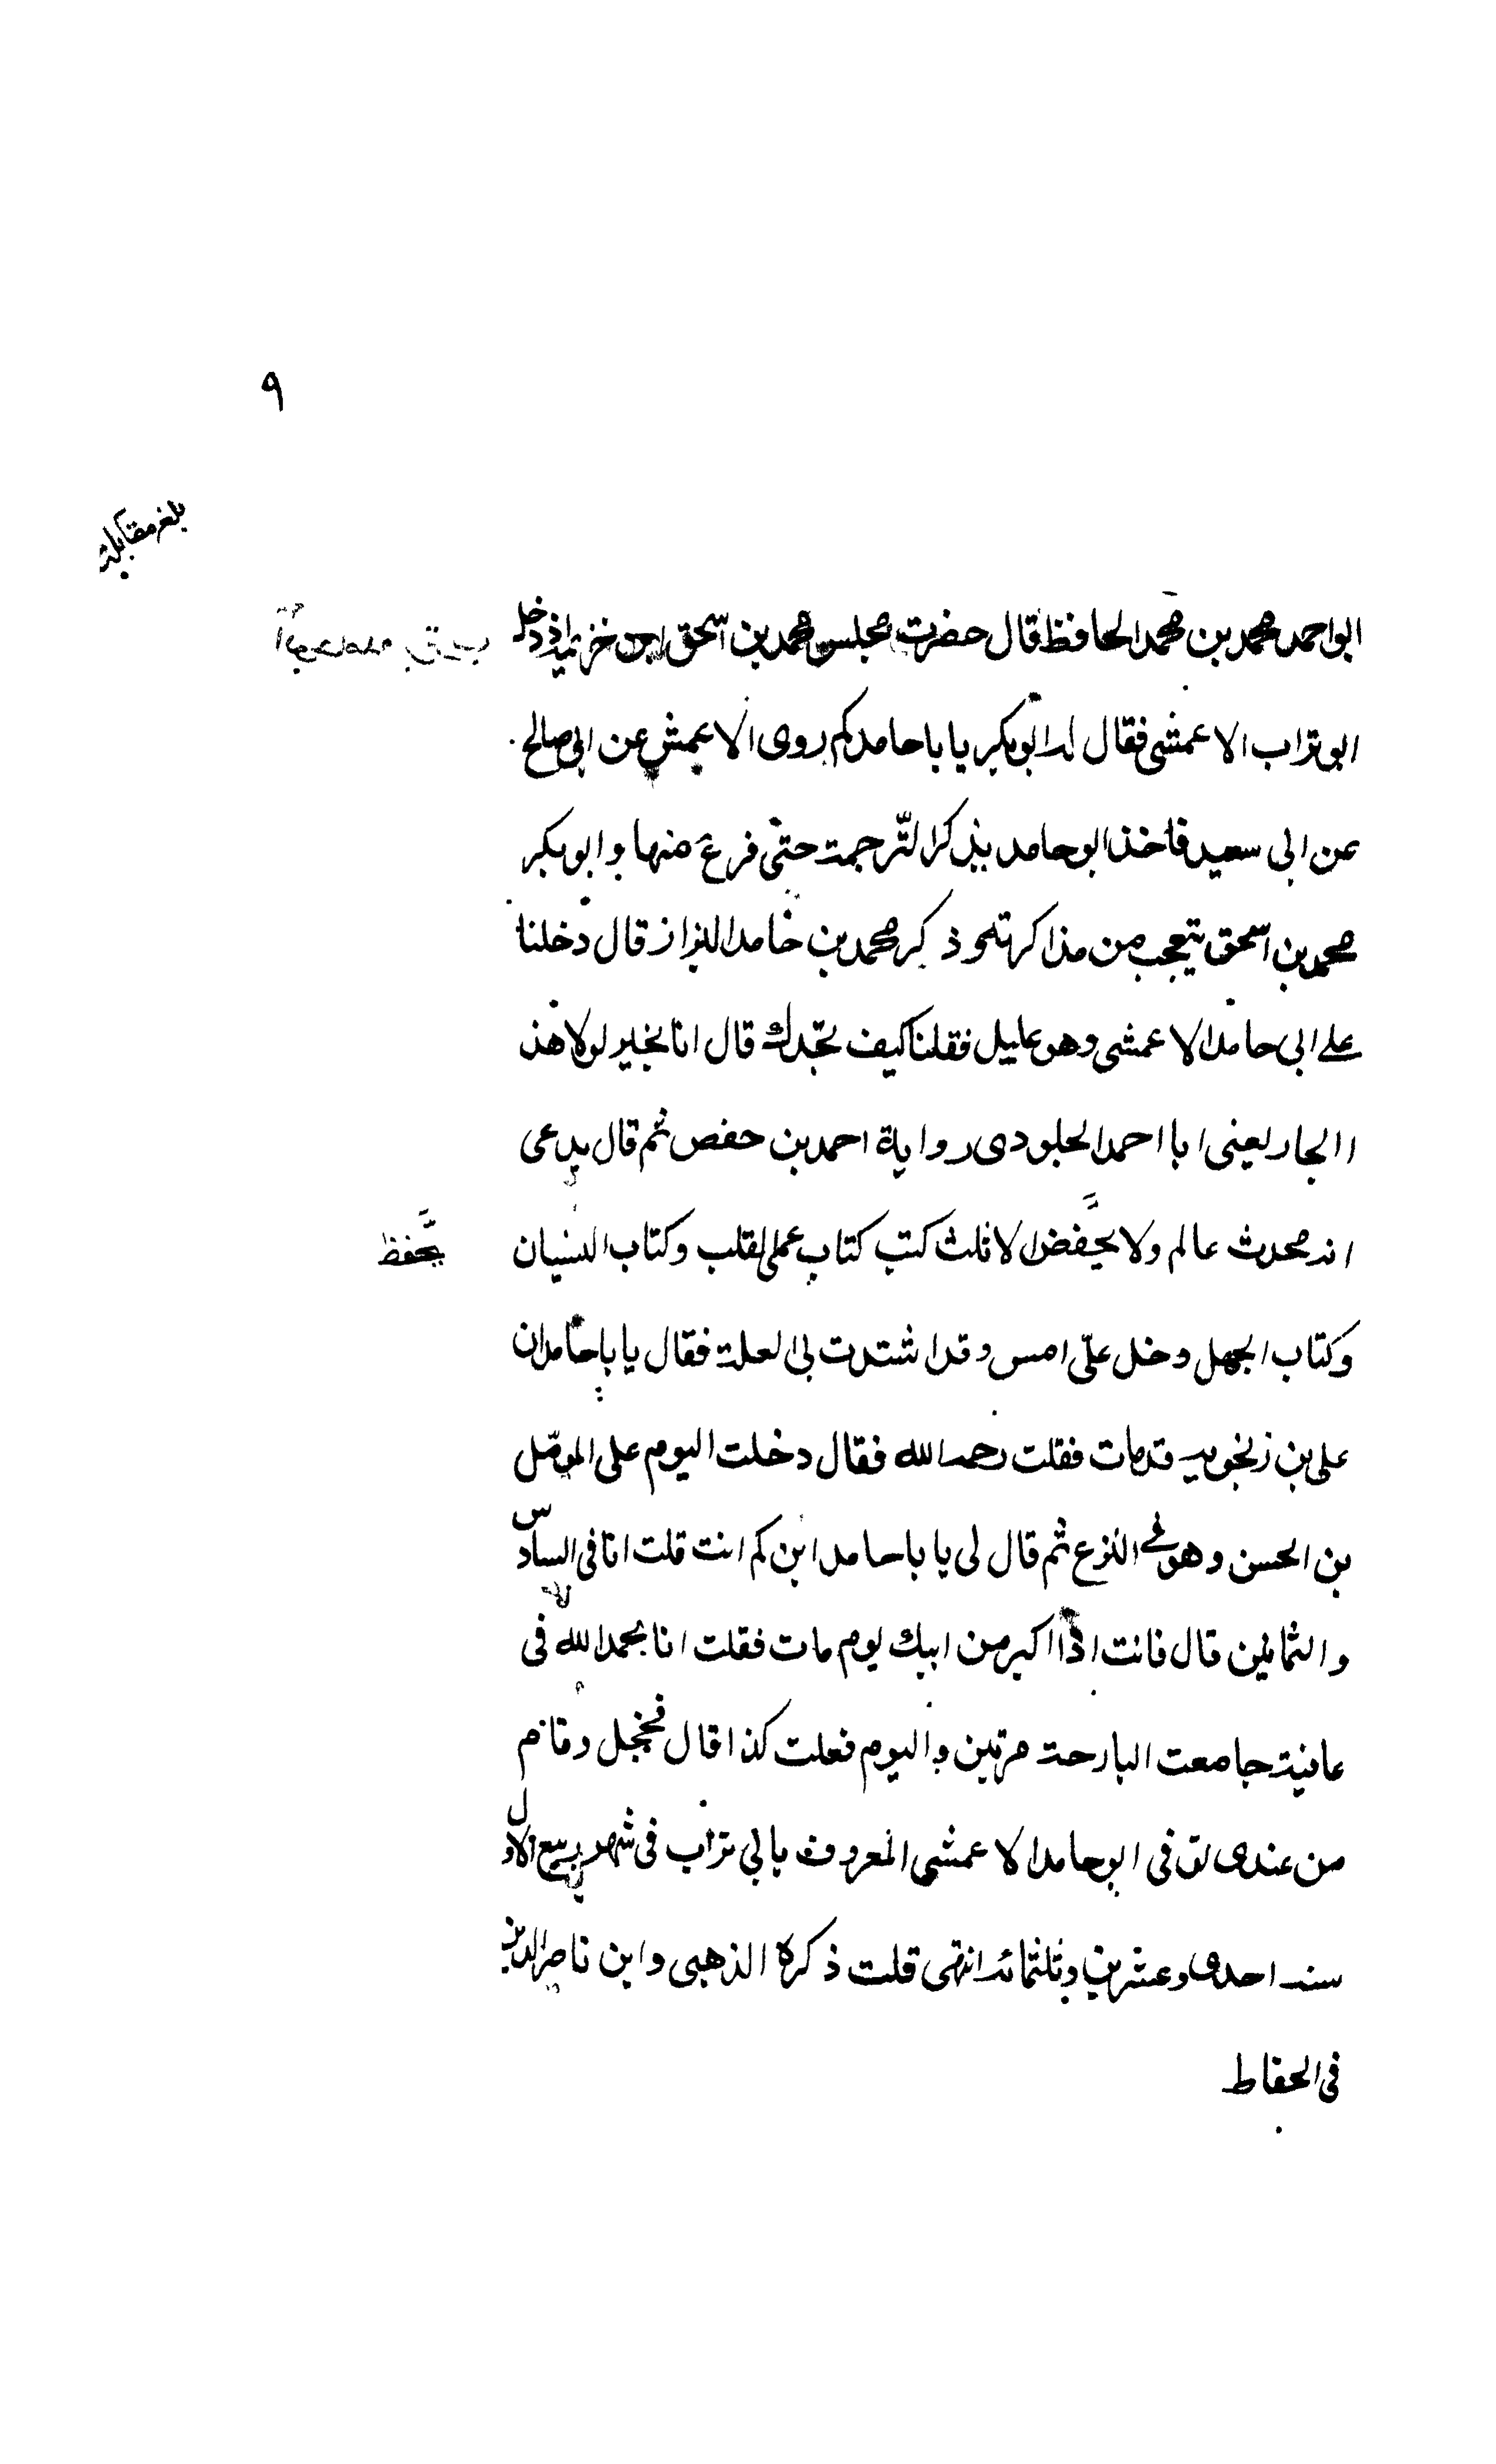 ٩
بلغ مقابلة
ابو احمد محمد بن محمد الحافظ قال حضرت مجلس محمد بن اسحق ابن خزيمة اذ دخل
ابو تراب الاعمشي فقال له ابو بكر يا با حامد كم روى الاعمش عن ابي صالح
عن ابي سعيد فاخذ ابو حامد يذكر الترجمة حتى فرغ منها وابو بكر
محمد بن اسحق يتعجب من مذاكرته وذكر محمد بن حامد البزاز قال دخلنا
على ابي حامد الاعمشي وهو عليل فقلنا كيف تجدك قال انا بخير لولا هذ
ا الجار يعني ابا احمد الجلودي رواية احمد بن حفص ثم قال يدعى
انه محدث عالم ولا يحفض الا ثلث كتب كتاب عمى القلب وكتاب النسيان
يحفظ
وكتاب الجهل دخل علّى امس وقد اشتدت بي العلة فقال يا با حامد ان
علي بن زنجويه قد مات فقلت رحمه الله فقال دخلت اليوم على المومّل
بن الحسن وهو في النزع ثم قال لي يا با حامد ابن كم انت قلت انا في السادس
والثمانين قال فانت اذا اكبر من ابيك يوم مات فقلت انا بحمد الله في
عافية جامعت البارحة مرتين واليوم فعلت كذا قال فخجل وقام
من عندي توفي ابو حامد الاعمشي المعروف بابي تراب في شهر ربيع الاول
سنه احدى وعشرين وثلثمائه انتهى قلت ذكره الذهبي وابن ناصر الدين
في الحفاط